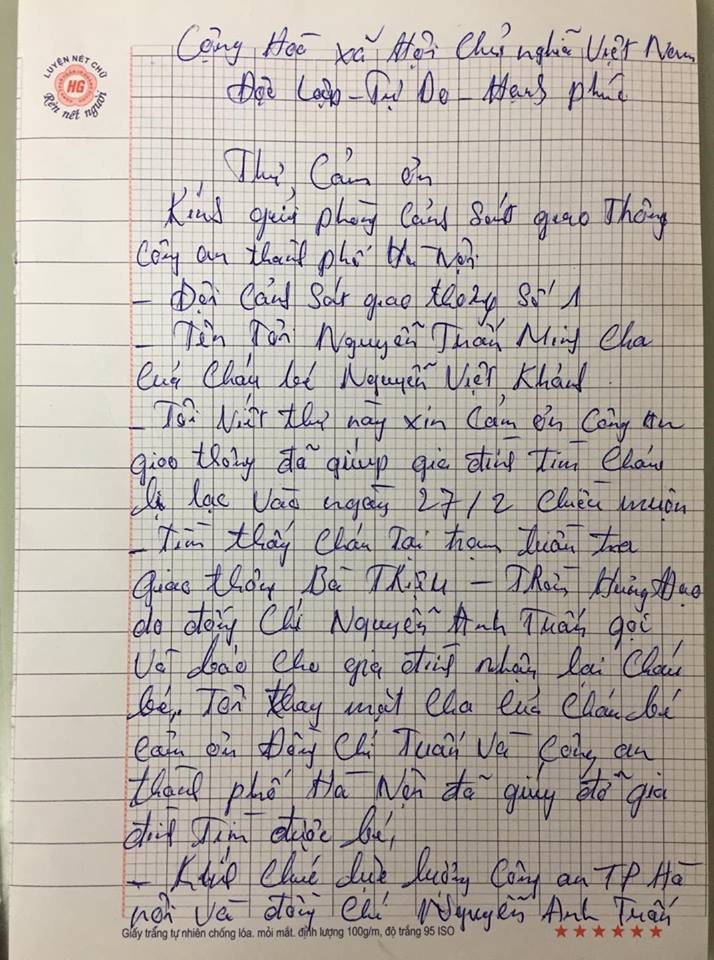 LUYỆN NÉT CHỮ
HG
Rèn nết người
Cộng Hoà xã Hội Chủ nghĩa Việt Nam
Độc Lập - Tự Do - Hạnh phúc
Thư Cảm ơn
Kính gửi phòng Cảnh Sát giao Thông
Công an thành phố Hà Nội
- Đội Cảnh Sát giao thông Số 1
- Tên Tôi Nguyễn Tuấn Minh Cha
Của Cháu bé Nguyễn Việt Khánh
- Tôi Viết thư này xin Cảm ơn Công An
giao thông đã giúp gia đình Tìm Cháu
bị lạc vào ngày 27/2 Chiều muộn
- Tìm thấy Cháu Tại trạm tuần tra
Giao thông Bà TRIỆU - TRẦN Hưng Đạo
do đồng Chí Nguyễn Anh Tuấn gọi
Và báo Cho gia đình nhận lại Cháu
bé, Tôi thay mặt Cha Của Cháu bé
Cảm ơn Đồng Chí Tuấn Và Công an
thành phố Hà Nội đã giúp đỡ gia
đình Tìm được bé,
- Kính Chúc lực lượng Công an TP Hà
nội Và đồng Chí Nguyễn Anh Tuấn
Giấy trắng tự nhiên chống lóa. mỏi mắt. định lượng 100g/m, độ trắng 95 ISO